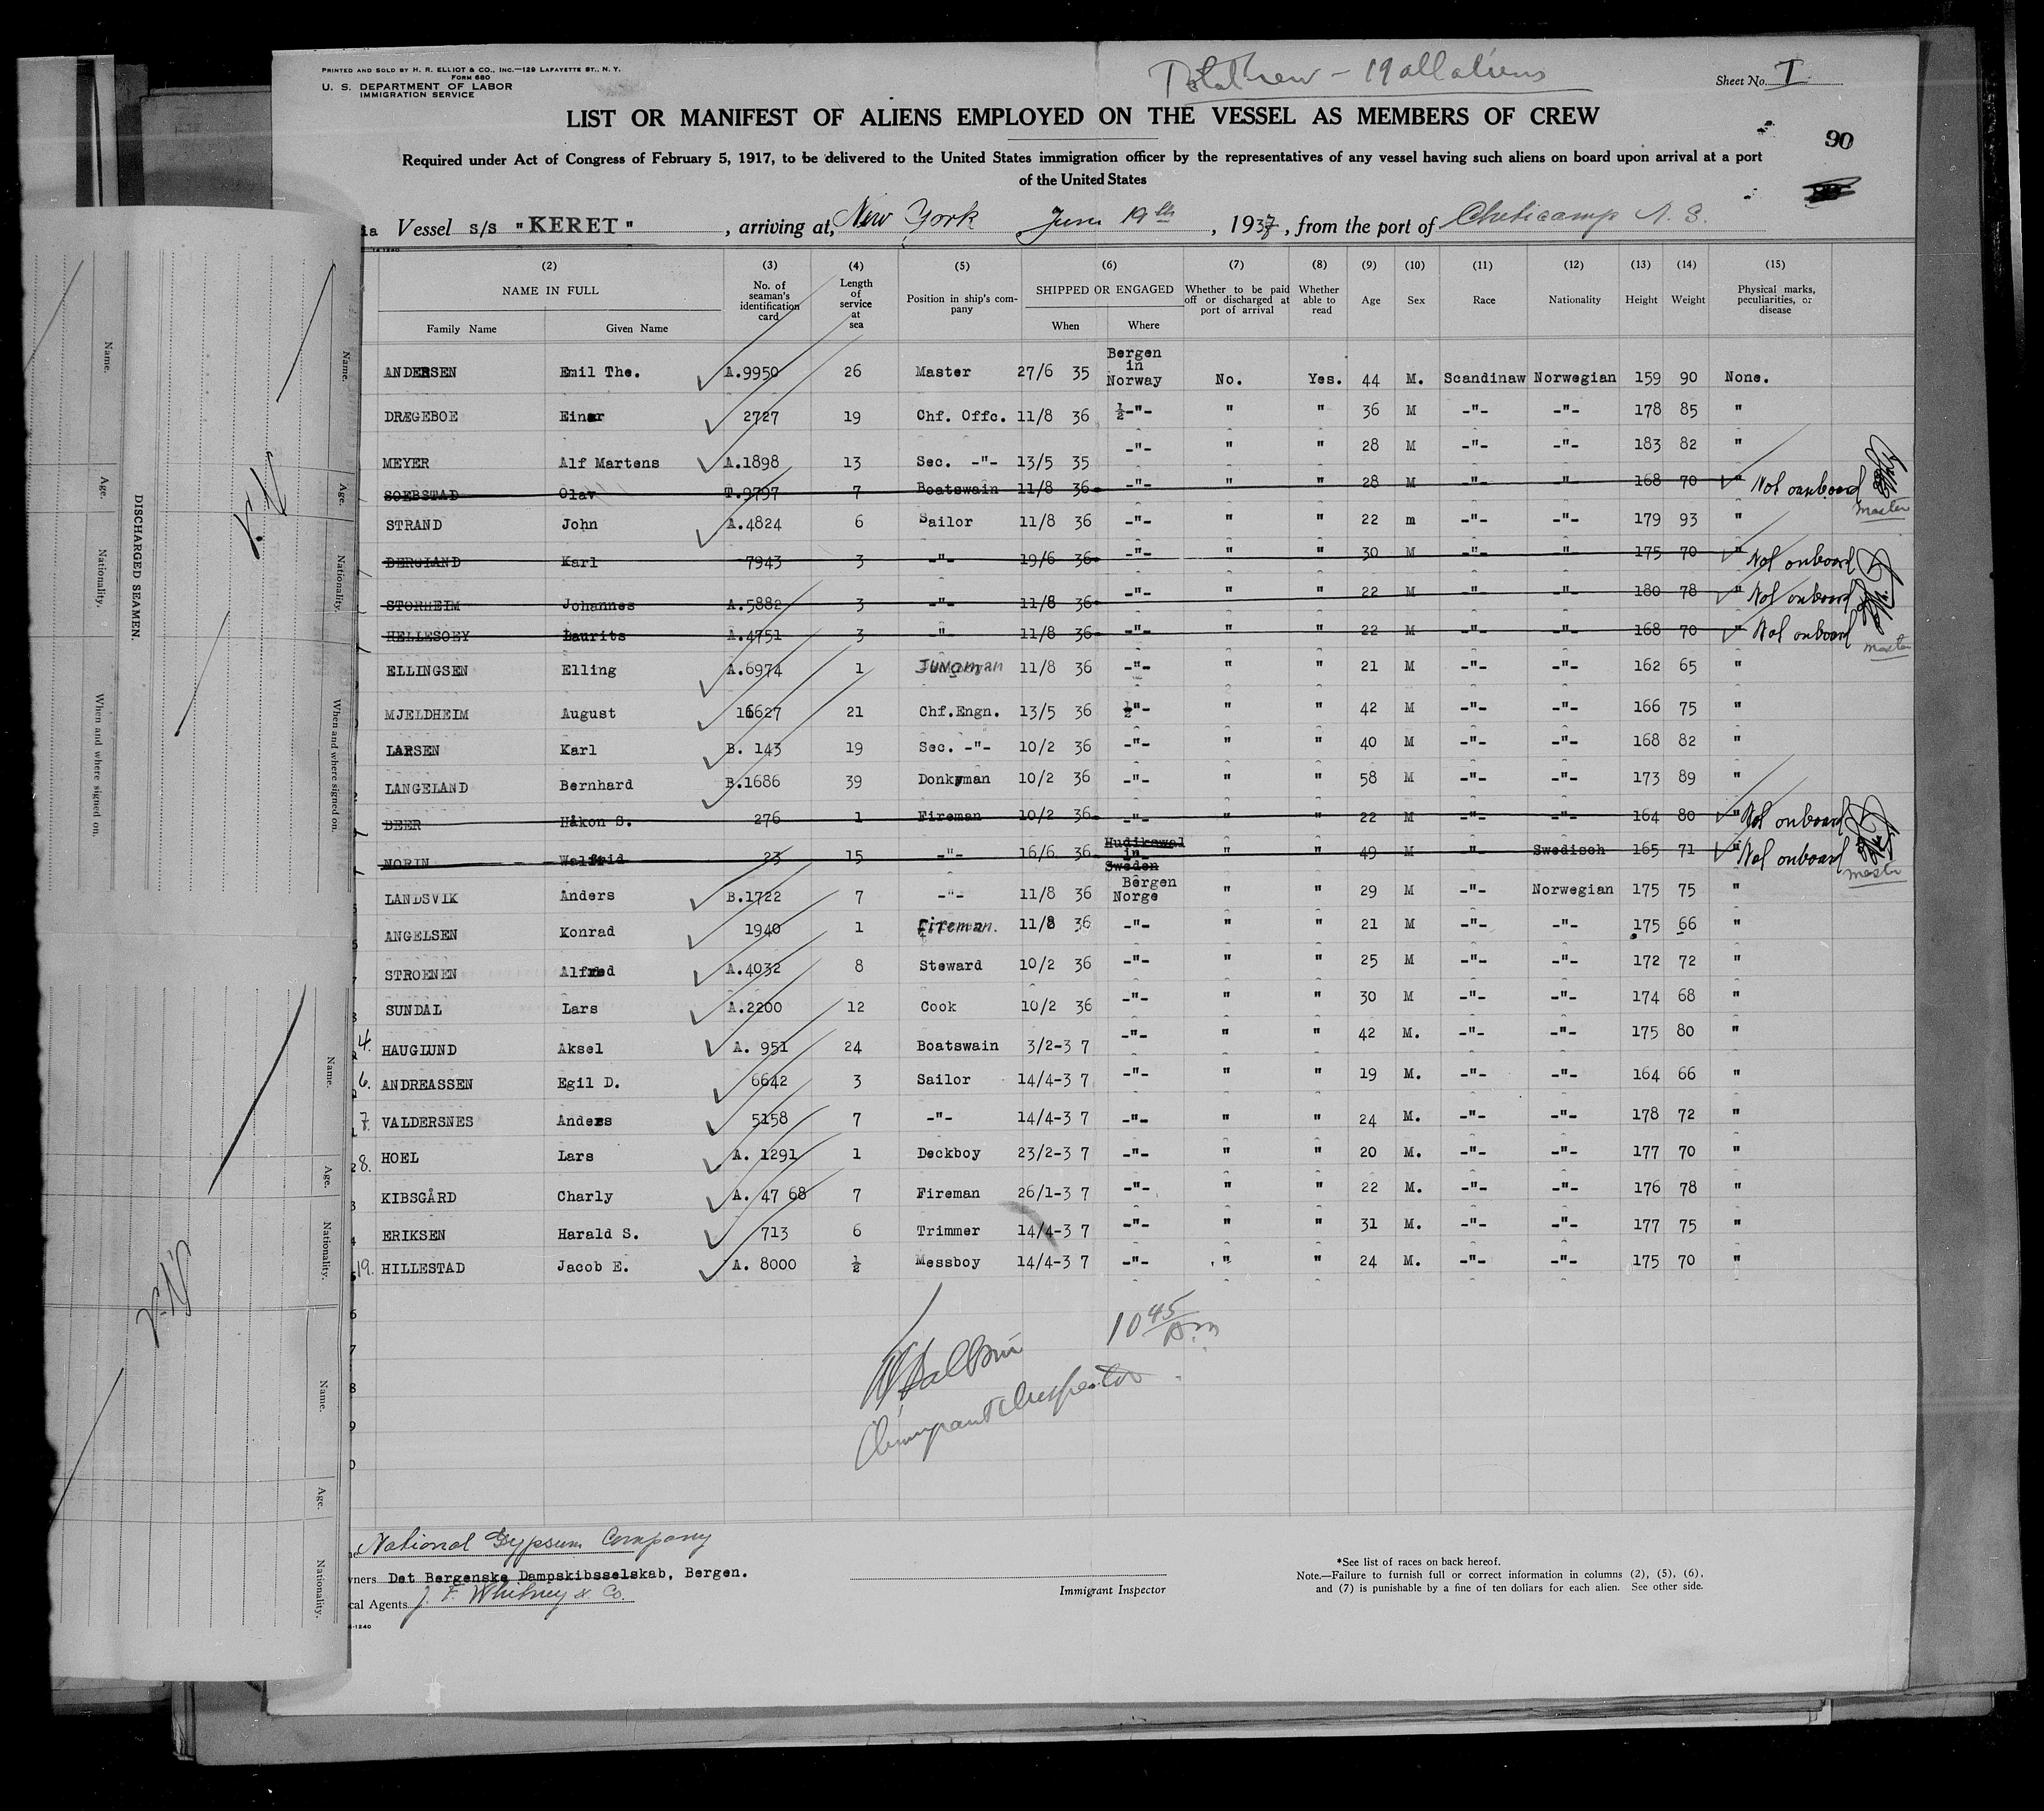 PRINTED AND SOLD BY H. R. ELLIOT & CO., INC.—129 LAFAYETTE ST., N. Y.
FORM 680
U. S. DEPARTMENT OF LABOR
IMMIGRATION SERVICE
19 all aliens
Sheet No. I
LIST OR MANIFEST OF ALIENS EMPLOYED ON THE VESSEL AS MEMBERS OF CREW
90
Required under Act of Congress of February 5, 1917, to be delivered to the United States immigration officer by the representatives of any vessel having such aliens on board upon arrival at a port
of the United States
Vessel s/s "KERET", arriving at, New York June 19th, 1937, from the port of Cheticamp N. S.
(2) (3) (4) (5) (6) (7) (8) (9) (10) (11) (12) (13) (14) (15)
NAME IN FULL No. of seaman's identification card Length of service at sea Position in ship's company SHIPPED OR ENGAGED Whether to be paid off or discharged at port of arrival Whether able to read Age Sex Race Nationality Height Weight Physical marks, peculiarities, or disease
Family Name Given Name When Where
ANDERSEN Emil The. A.9950 26 Master 27/6 35 Bergen in Norway No. Yes. 44 M. Scandinaw Norwegian 159 90 None.
DRÆGEBOE Einar 2727 19 Chf. Offc. 11/8 36 ½-"- " " 36 M -"- -"- 178 85 "
MEYER Alf Martens A.1898 13 Sec. -"- 13/5 35 -"- " " 28 M -"- -"- 183 82 "
SOEBSTAD Olav T.9797 7 Boatswain 11/8 36 -"- " " 28 M -"- -"- 168 70 " Not onboard
Master
STRAND John A.4824 6 Sailor 11/8 36 -"- " " 22 m -"- -"- 179 93 "
BERGLAND Karl 7943 3 -"- 19/6 36 -"- " " 30 M -"- -"- 175 70 " Not onboard
STORHEIM Johannes A.5882 3 -"- 11/8 36 -"- " " 22 M -"- -"- 180 78 " Not onboard
HELLESOEY Laurits A.4751 3 -"- 11/8 36 -"- " " 22 M -"- -"- 168 70 " Not onboard
Master
ELLINGSEN Elling A.6974 1 Jungman 11/8 36 -"- " " 21 M -"- -"- 162 65 "
MJELDHEIM August 16627 21 Chf.Engn. 13/5 36 ½"- " " 42 M -"- -"- 166 75 "
LARSEN Karl B. 143 19 Sec. -"- 10/2 36 -"- " " 40 M -"- -"- 168 82 "
LANGELAND Bernhard B.1686 39 Donkyman 10/2 36 -"- " " 58 M -"- -"- 173 89 "
BEER Håkon S. 276 1 Fireman 10/2 36 -"- " " 22 M -"- -"- 164 80 " Not onboard
NORIN Walfrid 23 15 -"- 16/6 36 Hudikswal in Sweden " " 49 M -"- Swedisch 165 71 " Not onboard
Master
LANDSVIK Anders B.1722 7 -"- 11/8 36 Bergen Norge " " 29 M -"- Norwegian 175 75 "
ANGELSEN Konrad 1940 1 Fireman. 11/8 36 -"- " " 21 M -"- -"- 175 66 "
STROENEN Alfred A.4032 8 Steward 10/2 36 -"- " " 25 M -"- -"- 172 72 "
SUNDAL Lars A.2200 12 Cook 10/2 36 -"- " " 30 M -"- -"- 174 68 "
4. HAUGLUND Aksel A. 951 24 Boatswain 3/2-3 7 -"- " " 42 M. -"- -"- 175 80 "
6. ANDREASSEN Egil D. 6642 3 Sailor 14/4-3 7 -"- " " 19 M. -"- -"- 164 66 "
7. VALDERSNES Anders 5158 7 -"- 14/4-3 7 -"- " " 24 M. -"- -"- 178 72 "
8. HOEL Lars A. 1291 1 Deckboy 23/2-3 7 -"- " " 20 M. -"- -"- 177 70 "
KIBSGÅRD Charly A. 47 68 7 Fireman 26/1-3 7 -"- " " 22 M. -"- -"- 176 78 "
ERIKSEN Harald S. 713 6 Trimmer 14/4-3 7 -"- " " 31 M. -"- -"- 177 75 "
19. HILLESTAD Jacob E. A. 8000 ½ Messboy 14/4-3 7 -"- " " 24 M. -"- -"- 175 70 "
10 45 Am
Immigrant Inspector
National Gypsum Company
Det Bergenske Dampskibsselskab, Bergen.
cal Agents J. F. Whitney & Co.
Immigrant Inspector
*See list of races on back hereof.
Note.—Failure to furnish full or correct information in columns (2), (5), (6),
and (7) is punishable by a fine of ten dollars for each alien. See other side.
DISCHARGED SEAMEN.
Name.
Age.
Nationality.
When and where signed on.
Name.
Age.
Nationality.
When and where signed on.
Name.
Age.
Nationality.
Name.
Age.
Nationality.